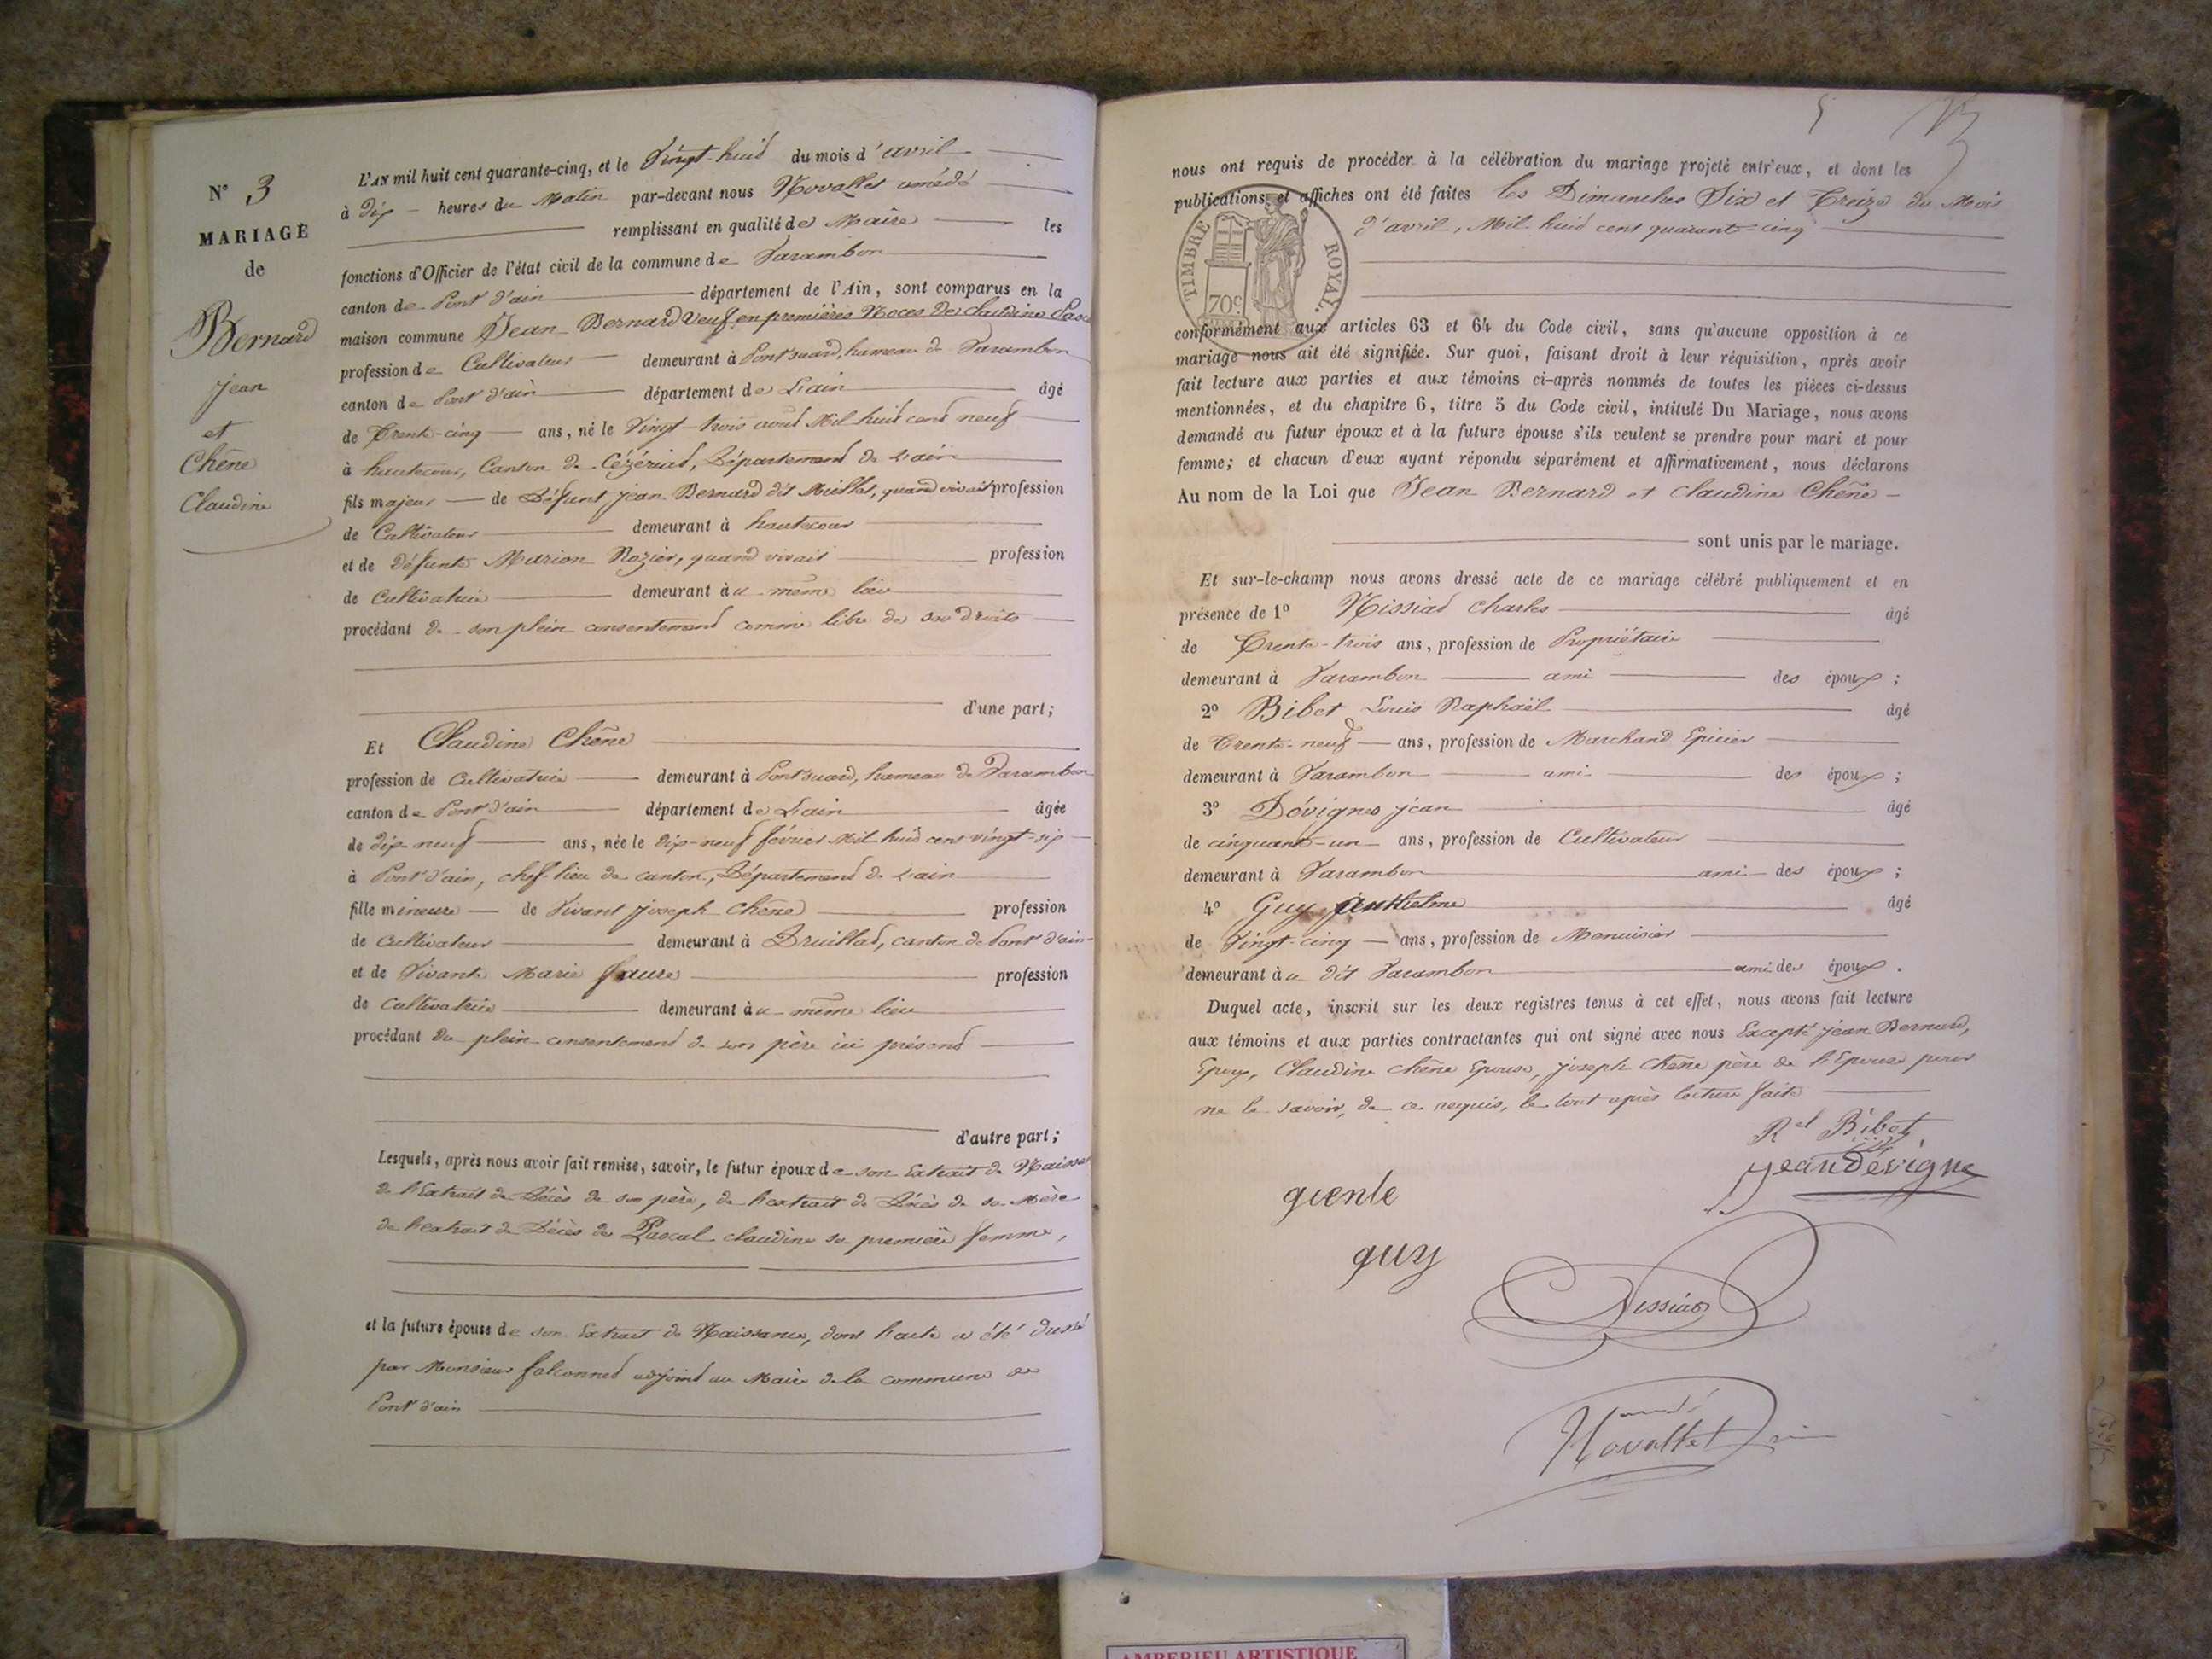 N° 3
MARIAGE
de
Bernard
jean
et
Chêne
Claudine
L'AN mil huit cent quarante-cinq, et le Vingt-huit du mois d'avril
à dix heures du Matin par-devant nous Novallet amédé
remplissant en qualité de Maire les
fonctions d'Officier de l'état civil de la commune de Varambon
canton de Pont d'ain département de l'Ain, sont comparus en la
maison commune Jean Bernard Veuf en premières Noces de Claudine Pascal
profession de Cultivateur demeurant à Pont suard, hameau de Varambon
canton de Pont d'ain département de L'ain âgé
de Trente-cinq ans, né le Vingt-trois aout Mil huit cent neuf
à hautecour, Canton de Cézériat, Département de L'ain
fils majeur de Défunt jean Bernard dit Muillet, quand vivait profession
de Cultivateur demeurant à hautecour
et de défunte Marion Rozier, quand vivait profession
de Cultivatrice demeurant au même lieu
procédant de son plein consentement comme libre de ses droits
d'une part;
Et Claudine Chêne
profession de Cultivatrice demeurant à Pont suard, hameau de Varambon
canton de Pont d'ain département de L'ain âgée
de dix neuf ans, née le dix-neuf février Mil huit cent vingt-six
à Pont d'ain, chef-lieu de canton, Département de L'ain
fille mineure de Vivant joseph Chêne profession
de cultivateur demeurant à Druillat, canton de Pont d'ain
et de Vivante Marie faure profession
de cultivatrice demeurant au même lieu
procédant du plein consentement de son père ici présent
d'autre part;
Lesquels, après nous avoir fait remise, savoir, le futur époux de son Extrait de Naissance
de l'Extrait de Décès de son père, de l'extrait de Décès de sa Mère
de l'extrait de Décès de Pascal claudine sa première femme,
et la future épouse de son Extrait de Naissance, dont l'acte a été dressé
par Monsieur falconnet adjoint au Maire de la commune de
Pont d'ain
5
nous ont requis de procéder à la célébration du mariage projeté entr'eux, et dont les
publications et affiches ont été faites les Dimanches Six et Treize du Mois
d'avril, Mil huit cent quarante-cinq
TIMBRE ROYAL.
70c
conformément aux articles 63 et 64 du Code civil, sans qu'aucune opposition à ce
mariage nous ait été signifiée. Sur quoi, faisant droit à leur réquisition, après avoir
fait lecture aux parties et aux témoins ci-après nommés de toutes les pièces ci-dessus
mentionnées, et du chapitre 6, titre 5 du Code civil, intitulé Du Mariage, nous avons
demandé au futur époux et à la future épouse s'ils veulent se prendre pour mari et pour
femme; et chacun d'eux ayant répondu séparément et affirmativement, nous déclarons
Au nom de la Loi que Jean Bernard et claudine Chêne
sont unis par le mariage.
Et sur-le-champ nous avons dressé acte de ce mariage célébré publiquement et en
présence de 1° Nissiat Charles âgé
de Trente-trois ans, profession de Propriétaire
demeurant à Varambon ami des époux;
2° Bibet Louis Raphaël âgé
de Trente-neuf ans, profession de Marchand Epicier
demeurant à Varambon ami des époux;
3° Dévignes jean âgé
de cinquante-un ans, profession de Cultivateur
demeurant à Varambon ami des époux;
4° Guy anthelme âgé
de Vingt-cinq ans, profession de Menuisier
demeurant au dit Varambon ami des époux.
Duquel acte, inscrit sur les deux registres tenus à cet effet, nous avons fait lecture
aux témoins et aux parties contractantes qui ont signé avec nous Excepté jean Bernard,
Epoux, Claudine Chêne Epouse, joseph Chêne père de l'Epouse pour
ne le savoir, de ce requis, le tout après lecture faite
Rel Bibet
jean Dévigne
guy
Nissiat
Novallet
AMBERIEU ARTISTIQUE